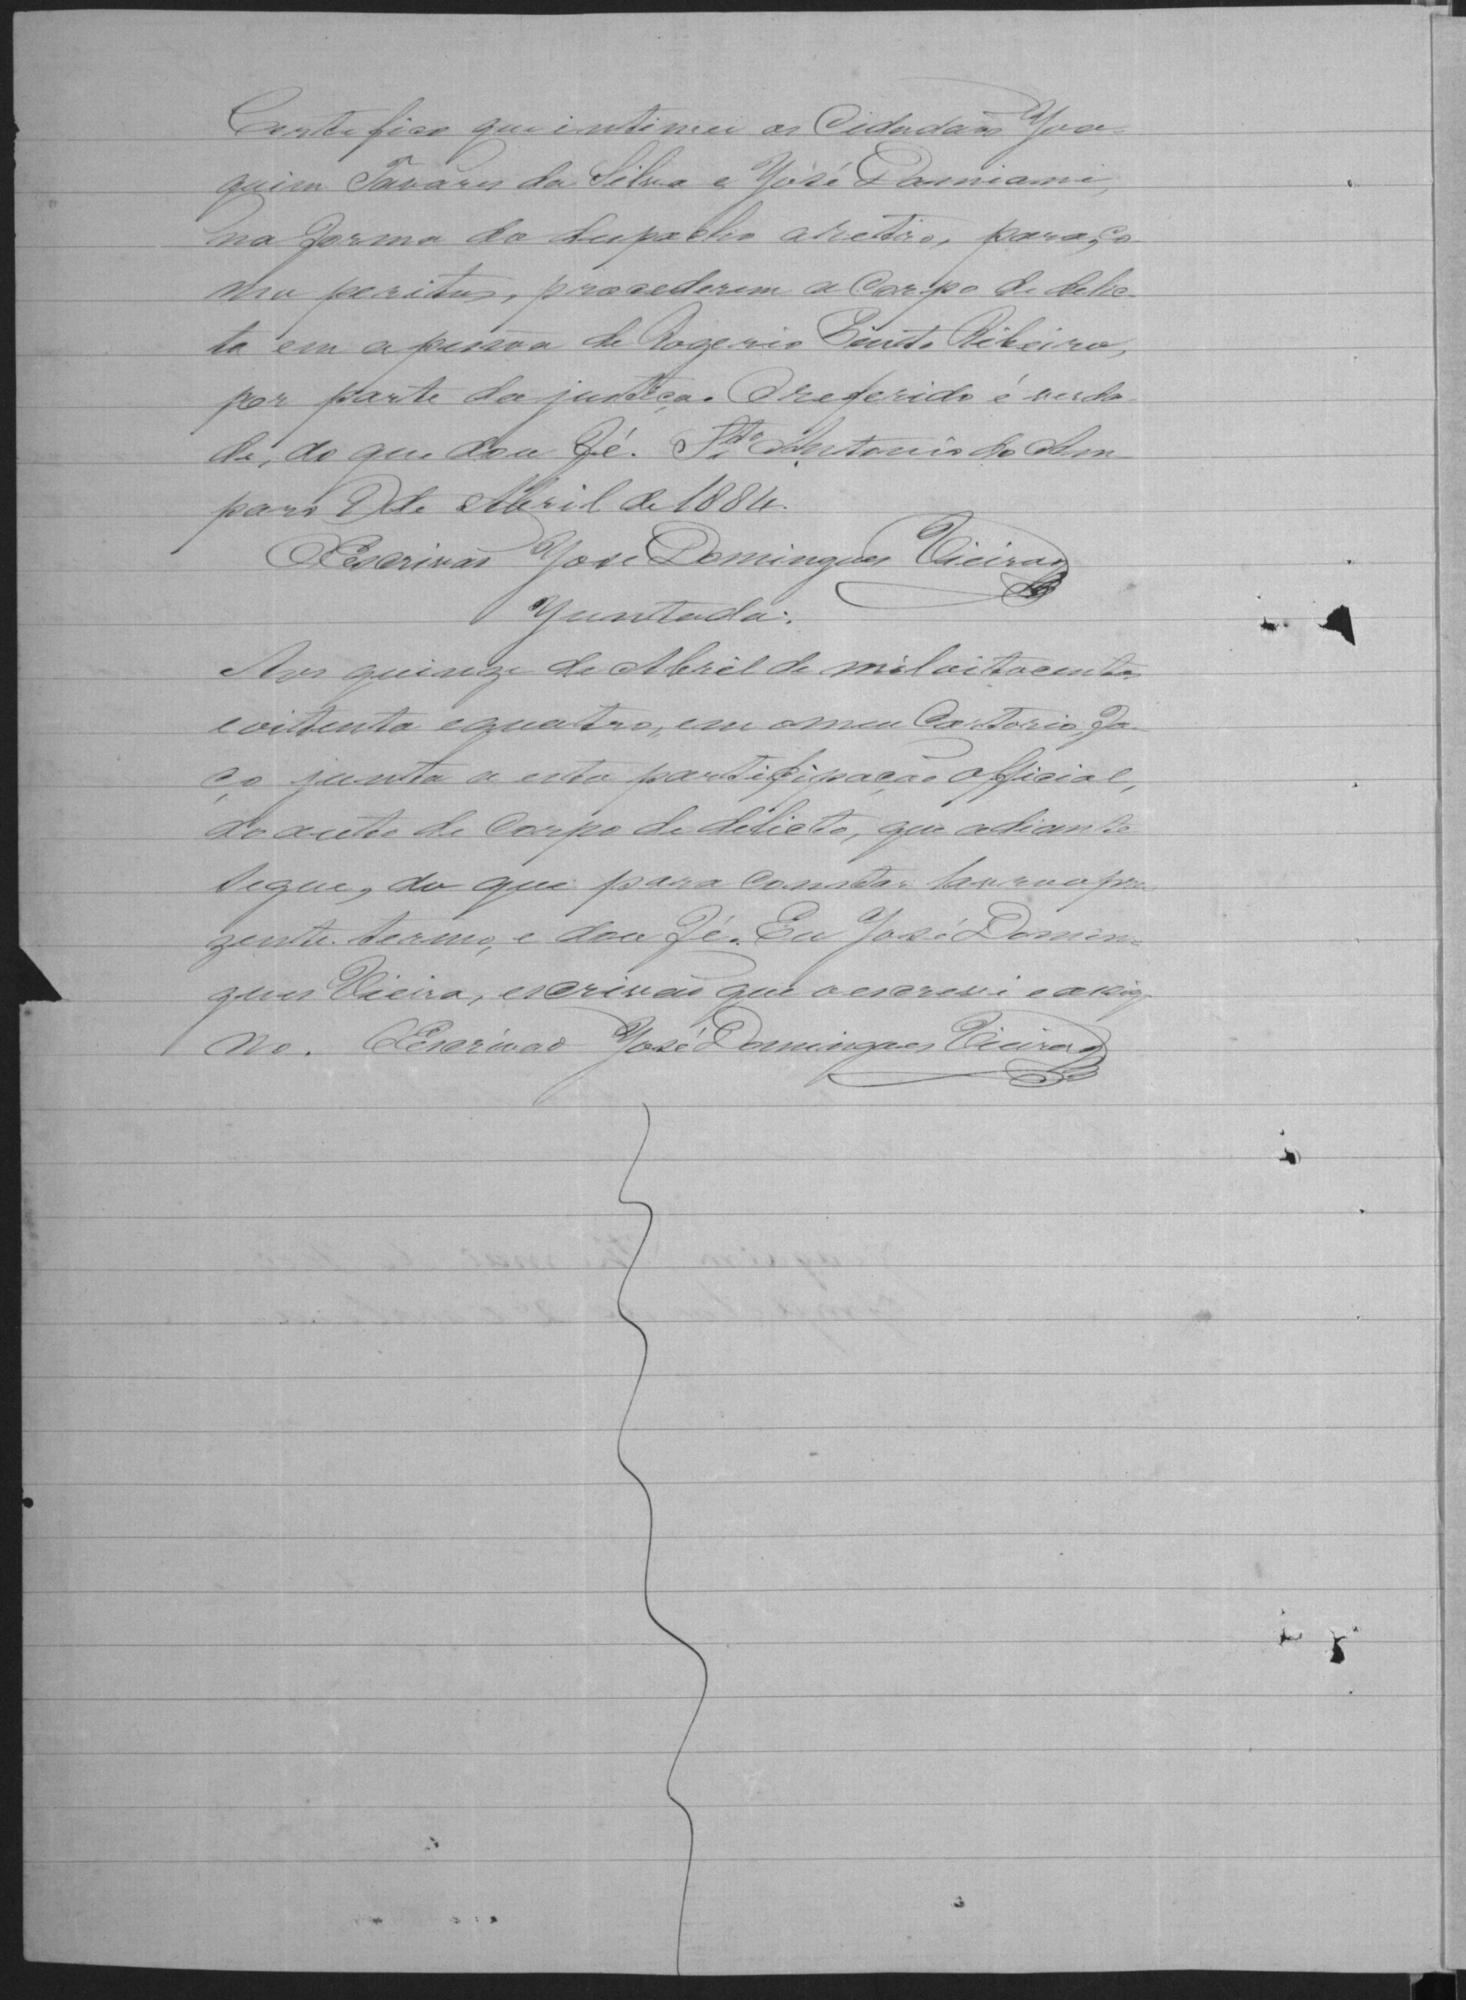 Certifico que intimei os Cidadãos Joa-
quim Tavares da Silva e José Damiani,
na forma do despacho a retro, para, co-
mo peritos, procederem a Corpo de delic-
to em a pessoa de Rogerio Bento Ribeiro,
por parte da justiça. O referido é verda-
de, do que dou fé. Sto Antonio do Am-
paro de Abril de 1884.
O Escrivão José Domingues Vieira
Juntada.
Aos quinze de Abril de mil oitocentos
e oitenta e quatro, em o meu Cartorio, fa-
ço junta a esta participação official,
do auto de Corpo de delicto, que adiante
segue, do que para constar lavro o pre-
zente termo, e dou fé. Eu José Domin-
gues Vieira, escrivão que o escrevi e assig-
no. O Escrivão José Domingues Vieira